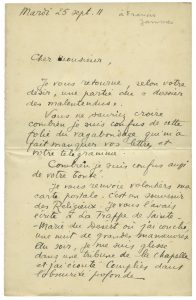 Mardi 25 sept. 11
à Francis
Jammes
Cher Monsieur,
Je vous retourne, selon votre
désir, une partie du « dossier
des malentendus ».
Vous ne sauriez croire
combien je suis confus de cette
folie du vagabondage qui m'a
fait manquer vos lettres et
votre télégramme.
Combien je suis confus aussi
de votre bonté.
Je vous renvoie volontiers ma
carte postale. C'est en souvenir
des Religieux. Je vous l'avais
écrite à la Trappe de Sainte-
Marie du Désert où j'ai couché
une nuit de grandes manœuvres.
Au soir, je me suis glissé
dans une tribune de la Chapelle
et j'ai écouté Complies dans
l'obscurité profonde